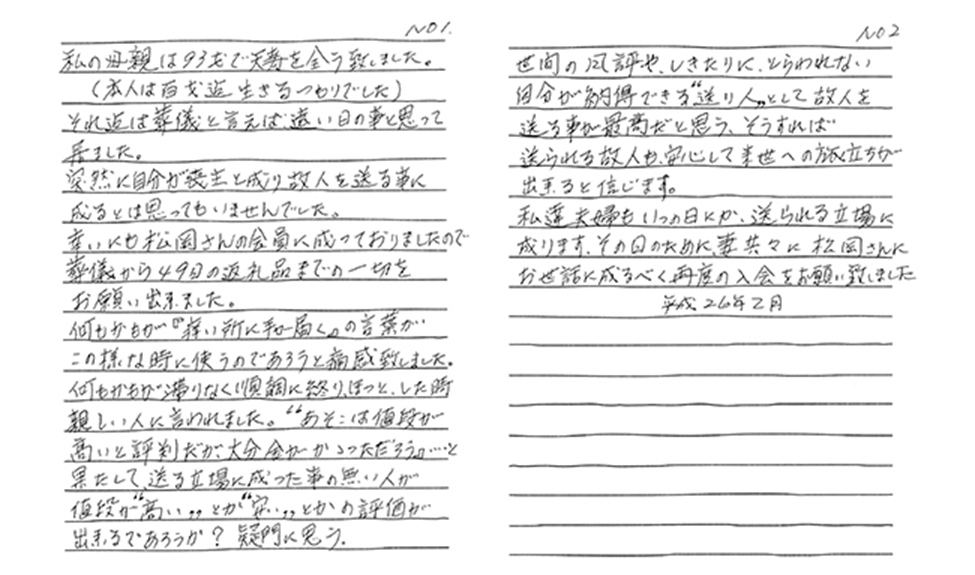 NO1.
私の母親は93才で天寿を全う致しました。
(本人は百才迄生きるつもりでした)
それ迄は葬儀と言えば、遠い日の事と思って
居ました。
突然に自分が喪主と成り故人を送る事に
成るとは思ってもいませんでした。
幸いにも松岡さんの会員に成っておりましたので
葬儀から49日の返礼品までの一切を
お願い出来ました。
何もかもが『痒い所に手が届く』の言葉が
この様な時に使うのであろうと痛感致しました。
何もかもが滞りなく順調に終り、ほっと、した時
親しい人に言われました。“あそこは値段が
高いと評判だが、大分金がかゝっただろう』……と
果たして、送る立場に成った事の無い人が
値段が“高い„とか“安い„とかの評価が
出来るであろうか?疑問に思う.
NO2
世間の風評や、しきたりに、とらわれない
自分が納得できる“送り人„として故人を
送る事が最高だと思う、そうすれば
送られる故人も、安心して来世への旅立ちが
出来ると信じます。
私達夫婦もいつの日にか、送られる立場に
成ります、その日のために妻共々に松岡さんに
お世話に成るべく再度の入会をお願い致しました
平成26年2月